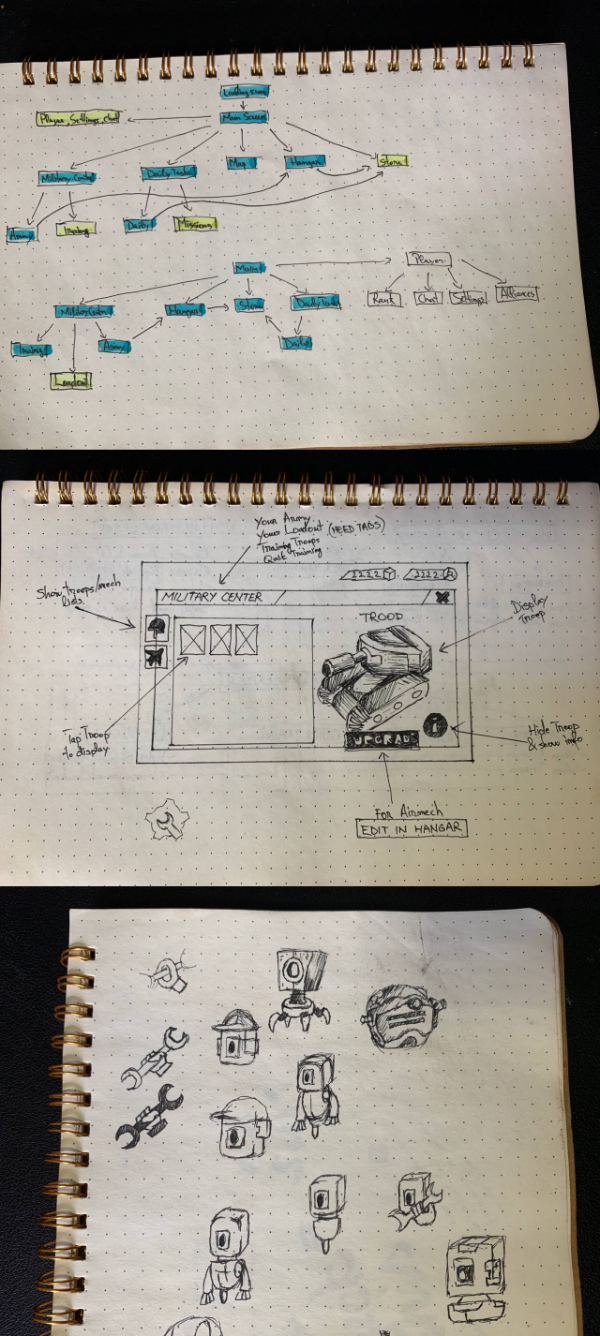 Loading Screen
Main Screen
Player, Settings, chat
Military Center
Daily Tasks
Map
Hangar
Store
Army
Daily
Missions
Main
Player
Military Center
Hangar
Store
Daily Tasks
Rank
Chat
Settings
Alliances
Army
Daily
Loadout
Your Army
Your Loadout (NEED TABS)
Training Troops
Quick Training
Show troops/mech
lists
2222
2222
MILITARY CENTER
TROOP
Display
Troop
Tap Troop
to display
UPGRADE
i
Hide Troop
& show info
For Airmech
EDIT IN HANGAR